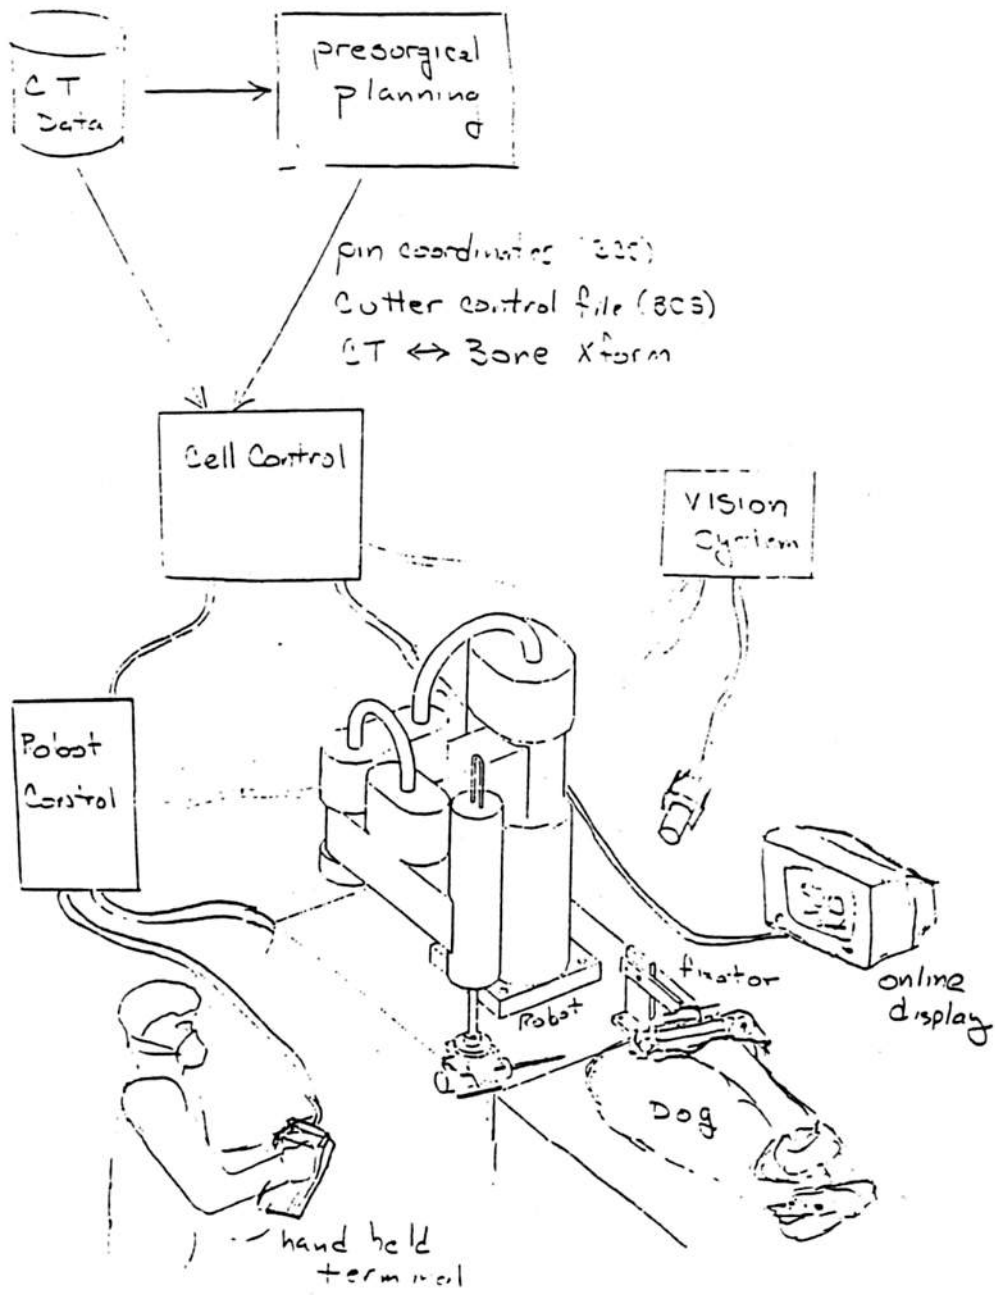 CT
Data
presurgical
planning
pin coordinates
Cutter control file (BCS)
CT ↔ Bone Xform
Cell Control
Vision
System
Robot
Control
fixator
online
display
Robot
Dog
hand held
terminal